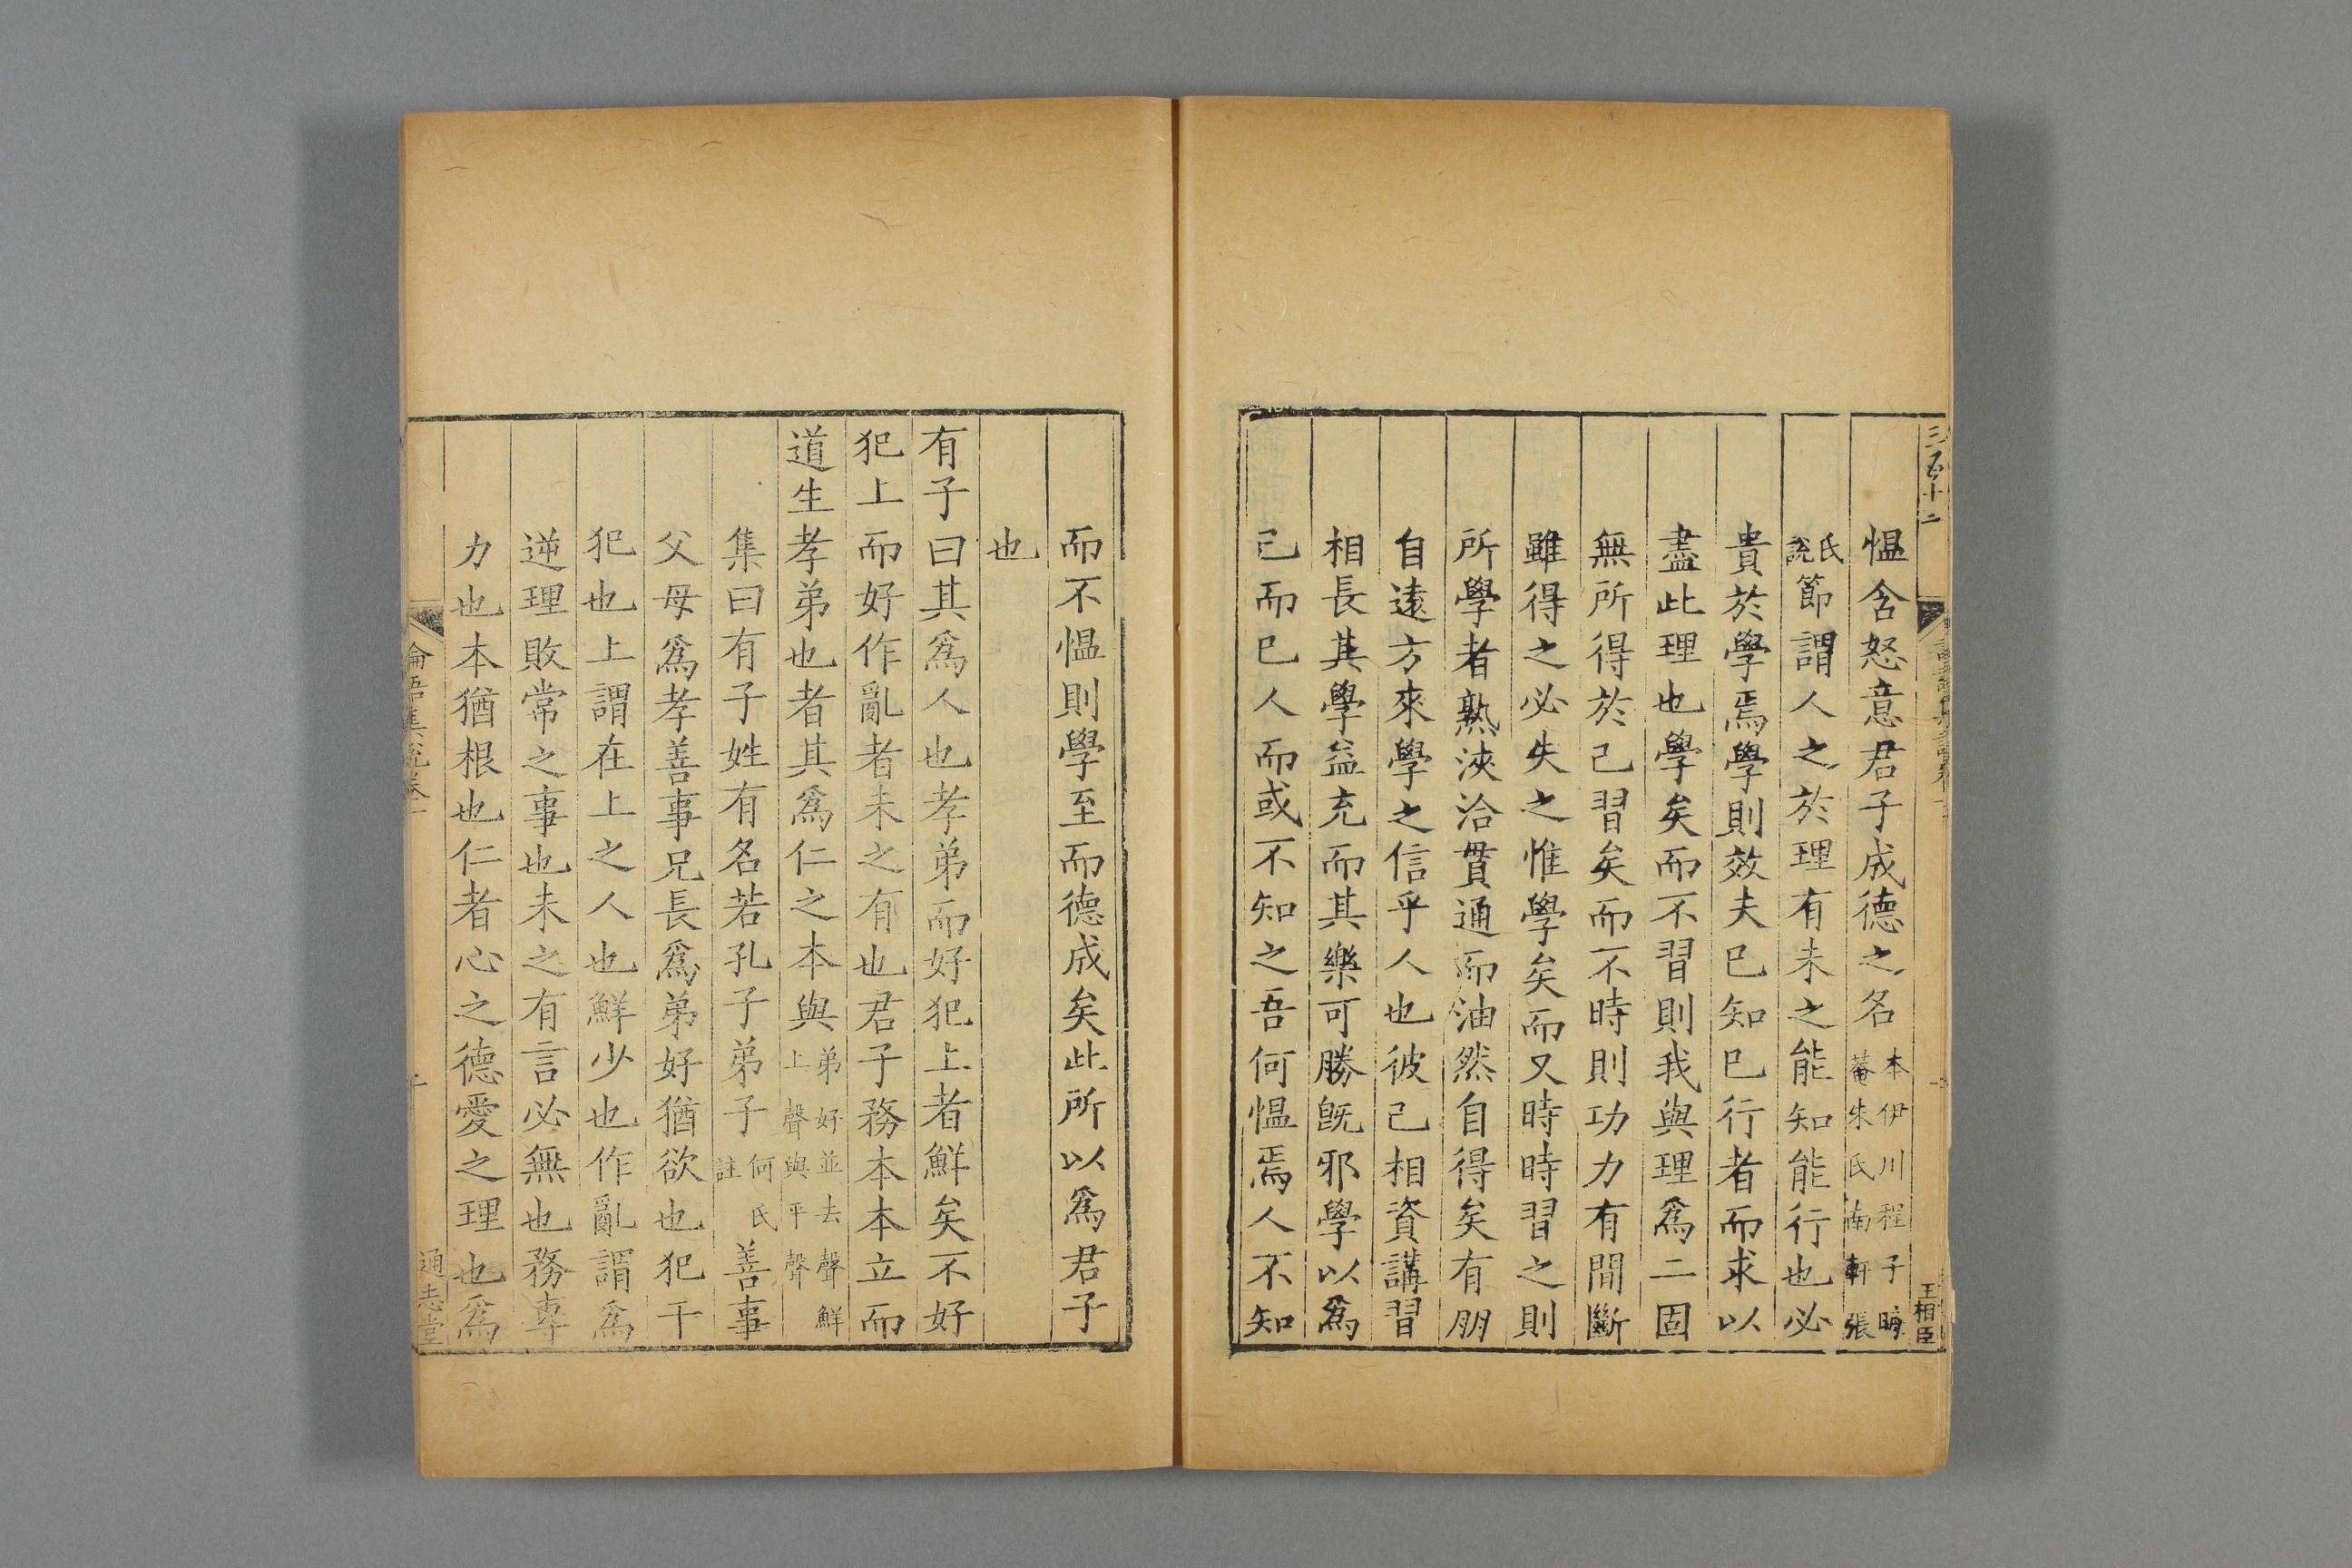 三百十二
王相臣
慍含怒意君子成德之名本伊川程子晦菴朱氏南軒張
氏說節謂人之於理有未之能知能行也必
貴於學焉學則效夫已知已行者而求以
盡此理也學矣而不習則我與理爲二固
無所得於己習矣而不時則功力有間斷
雖得之必失之惟學矣而又時時習之則
所學者熟浹洽貫通而油然自得矣有朋
自遠方來學之信乎人也彼己相資講習
相長其學益充而其樂可勝旣邪學以爲
己而已人而或不知之吾何慍焉人不知
而不慍則學至而德成矣此所以爲君子
也
有子曰其爲人也孝弟而好犯上者鮮矣不好
犯上而好作亂者未之有也君子務本本立而
道生孝弟也者其爲仁之本與弟好並去聲鮮上聲與平聲
集曰有子姓有名若孔子弟子何氏註善事
父母爲孝善事兄長爲弟好猶欲也犯干
犯也上謂在上之人也鮮少也作亂謂爲
逆理敗常之事也未之有言必無也務專
力也本猶根也仁者心之德愛之理也爲
論語集說卷一
通志堂